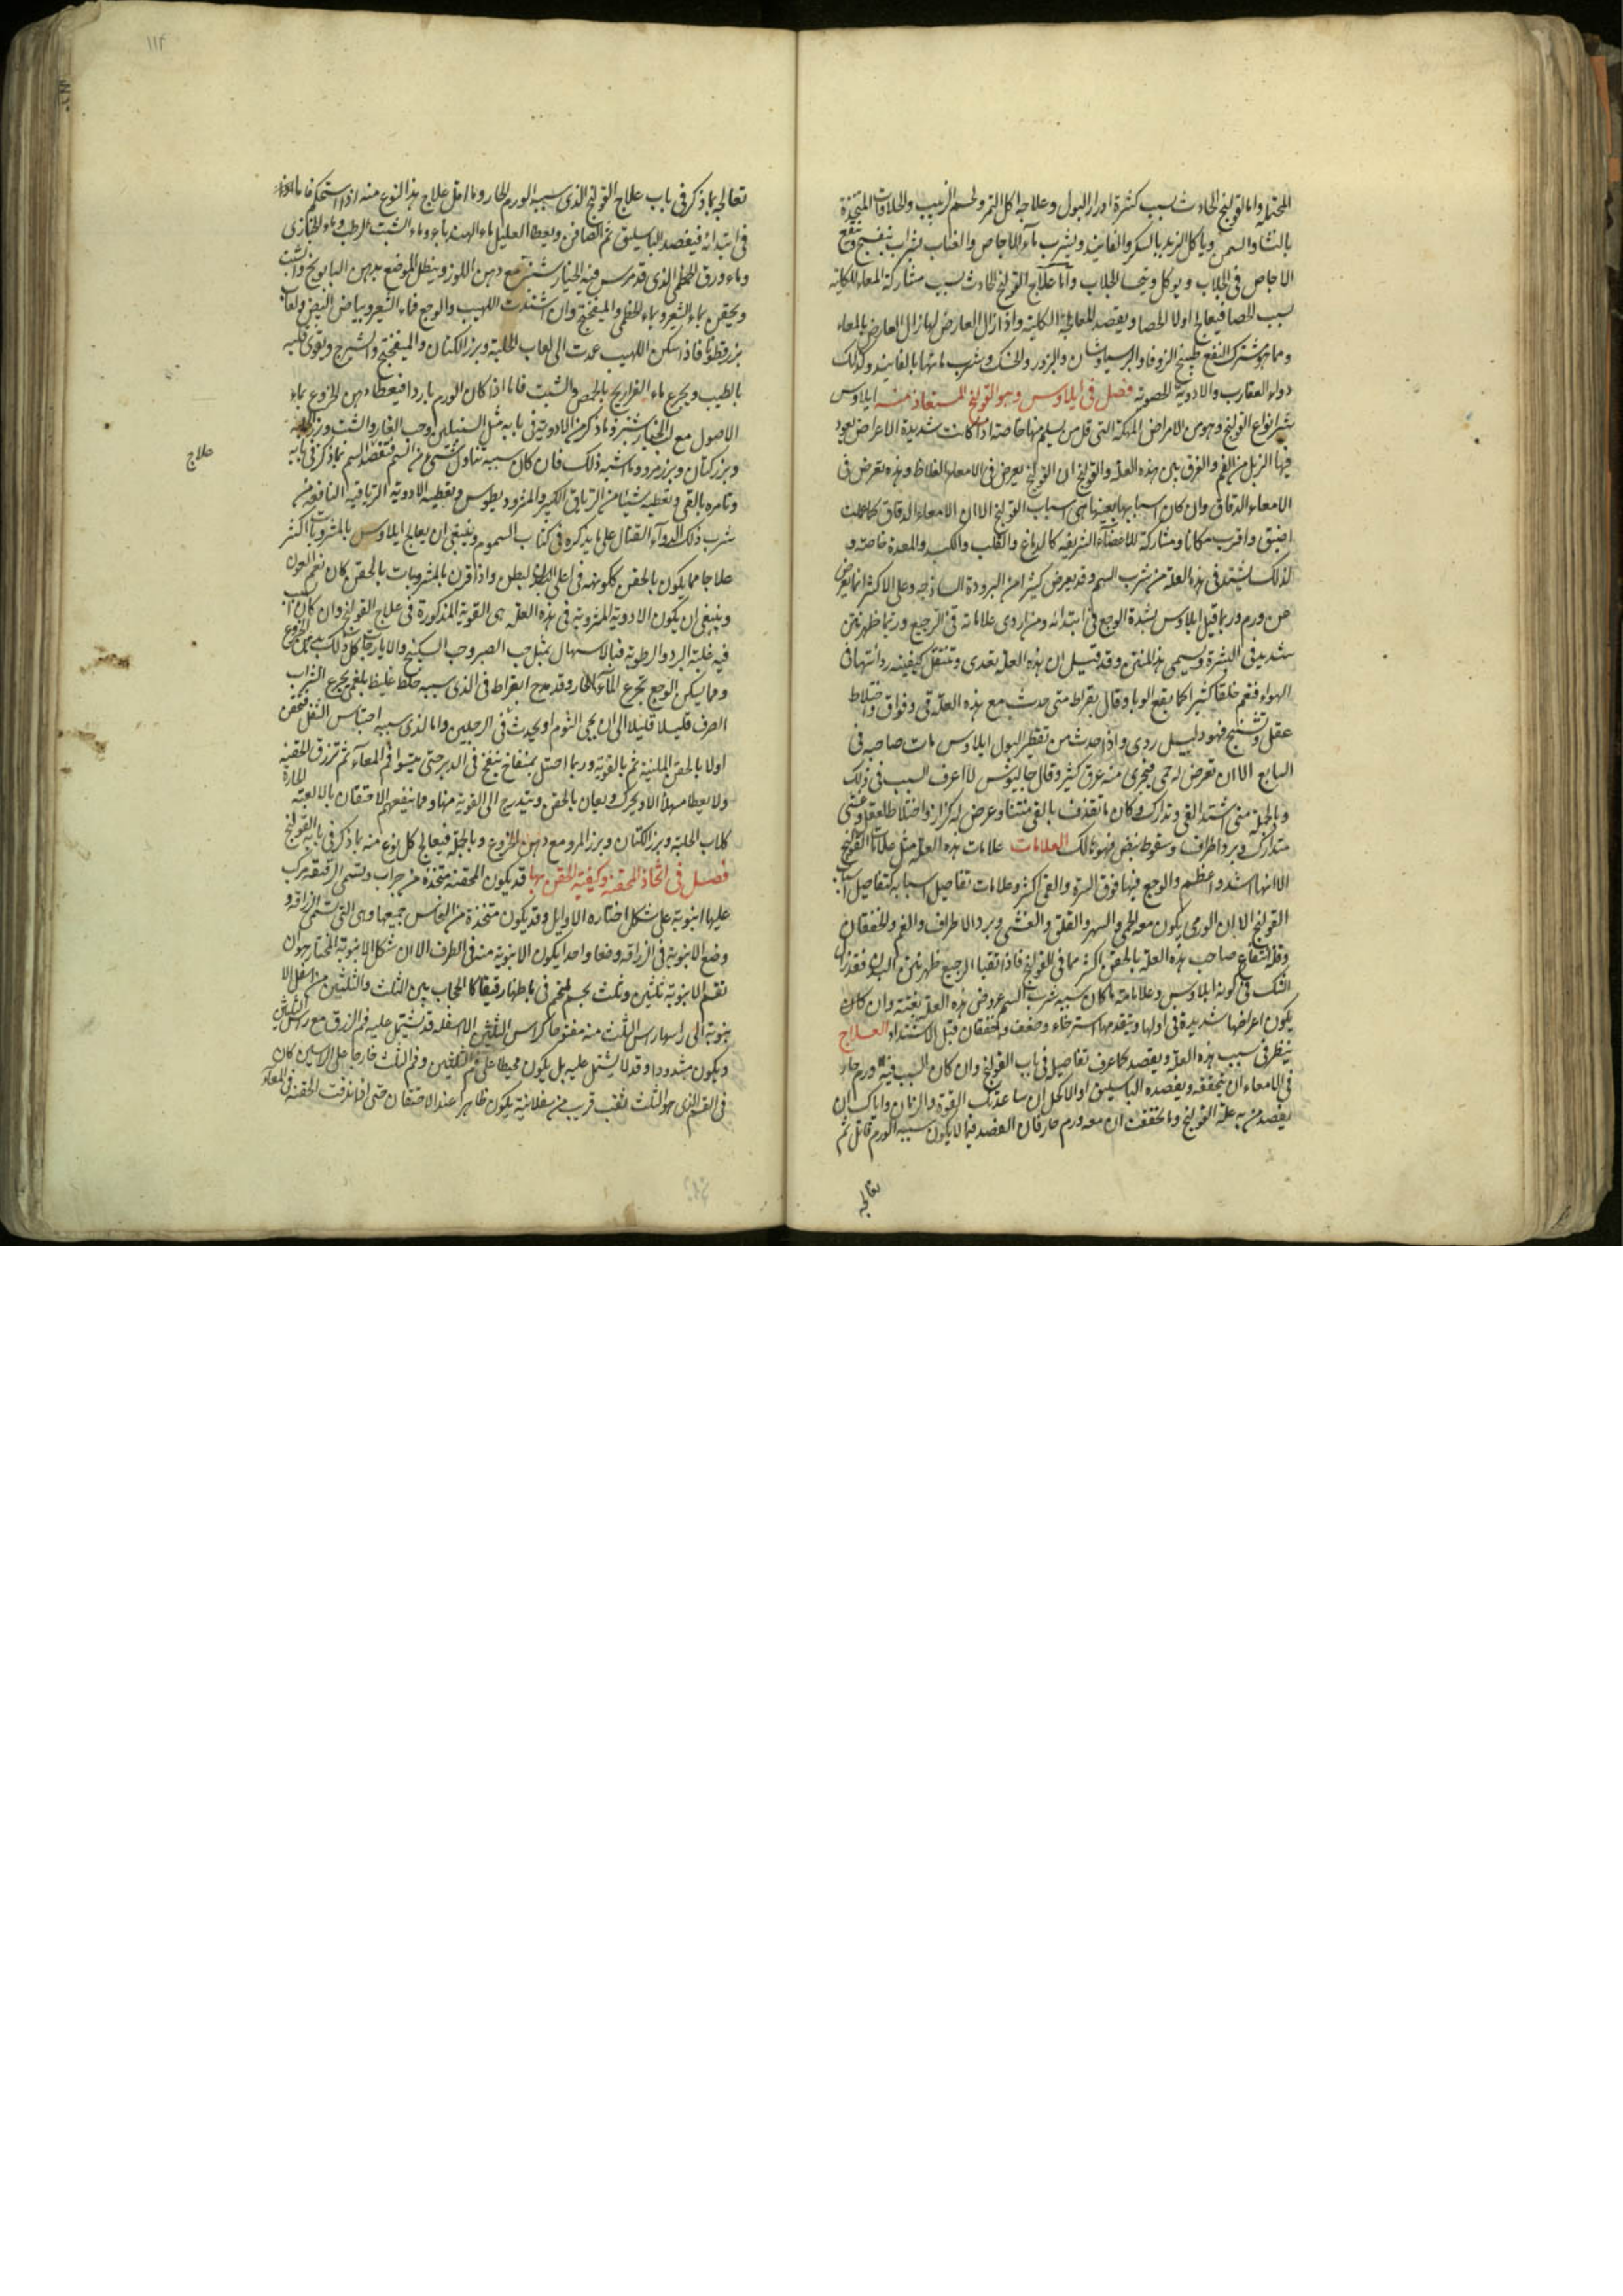 المحتملة واما القولنج الحادث بسبب كثرة ادرار البول وعلاجه اكل التمر ولحم الزبيب والحلاوات المتخذة
بالنشا والسمن ويأكل الزبد بالسكر والفانيد ويشرب ماء الاجاص والعناب بشراب بنفسج وينقع
الاجاص فى الجلاب ويوكل ويتحسا الجلاب واما علاج القولنج الحادث بسبب مشاركة المعاء للكلية
بسبب الحصا فيعالج اولا الحصا ويقصد لمعالجة الكلية واذا زال العارض لها زال العارض بالمعاء
ومما هو مشترك النفع طبيخ الزوفا والبرسياوشان والبزور والحسك وشرب مائها بالفانيد وكذلك
دواء العقارب والادوية الحصوية فصل فى ايلاوس وهو القولنج المستعاذ منه ايلاوس
شر انواع القولنج وهو من الامراض المهلكة التى قل من يسلم منها خاصة اذا كانت شديدة الاعراض يعود
فيها الزبل من الفم والفرق بين هذه العلة والقولنج ان القولنج يعرض فى الامعاء الغلاظ وهذه تعرض فى
الامعاء الدقاق وان كان اسبابها بعينها هى اسباب القولنج الا ان الامعاء الدقاق لما كانت
اضيق واقرب مكانا ومشاركة للاعضاء الشريفه كالدماغ والقلب والكبد والمعدة خاصة و
لذلك يشتد فى هذه العلة من شرب السم وقد يعرض كثيرا من البرودة الساذجه وعلى الاكثر انما يعرض
من ورم وربما قيل ايلاوس لشدة الوجع فى ابتدائه ومن اردى علاماته قى الرجيع وربما ظهر نتن
شديد فى البشرة ويسمى هذا المنتن وقد قيل ان هذه العلة تعدى وتنتقل كيفيته ردائتها فى
الهواء فتعم خلقا كثيرا كما يقع الوبا وقال بقراط متى حدث مع هذه العلة قى وفواق واختلاط
عقل وتشنج فهو دليل ردى واذا حدث من تقطير البول ايلاوس مات صاحبه فى
السابع الا ان تعرض له حمى فيجرى منه عرق كثير وقال جالينوس لا اعرف السبب فى ذلك
وبالجملة متى اشتد القى وتدارك وكان ما يقذف بالقى منتنا وعرض له كزاز واختلاط العقل وغشى
متدارك وبرد اطراف وسقوط نبض فهو هالك العلامات علامات هذه العلة مثل علامات القولنج
الا انها اشد واعظم والوجع فيها فوق السرة والقى اكثر وعلامات تفاصيل اسبابه كتفاصيل اسباب
القولنج الا ان الورمى يكون معه الحمى والسهر والقلق والغشى وبرد الاطراف والغم والخفقان
وقلة انتفاع صاحب هذه العلة بالحقن اكثر مما فى القولنج فاذا تقيا الرجيع ظهر نتن البدن فقد زال
الشك فى كونه ايلاوس وعلامة ما كان سببه شرب السم عروض هذه العلة بغتة وان كان
يكون اعراضها شديدة فى اولها ويتقدمها استرخاء وضعف وخفقان قبل الاشتداد العلاج
ينظر فى سبب هذه العلة ويقصد كما عرف تفاصيله فى باب القولنج وان كان السبب فيه ورم حار
فى الامعاء ان يتحققه ويفصده الباسليق او الاكحل ان ساعدتك القوة والزمان واياك ان
يفصد من به علة القولنج وما تحققت ان معه ورم حار فان الفصد فيما لا يكون سببه الورم قاتل ثم
تعالجه
١١٢
تعالجه بما ذكر فى باب علاج القولنج الذى سببه الورم الحار وما اقل علاج هذا النوع منه اذا استحكم فاما
فى ابتدائه فيفصد الباسليق ثم الصافن ويعطا العليل ماء الهندباء وماء الشبت الرطب وماء الخبازى
وماء ورق الخطمى الذى قد مرس فيه الخيار شنبر مع دهن اللوز وينطل الموضع بدهن البابونج والشبت
ويحقن بماء الشعير وبماء الخطمى والميفختج وان اشتدت اللهيب والوجع فماء الشعير وبياض البيض ولعاب
بزرقطونا فاذا سكن اللهيب عدت الى لعاب الحلبة وبزر الكتان والميفختج والشيرج ويقوى قلبه
بالطيب ويجرع ماء الفراريج بالحمص والشبت فاما اذا كان الورم باردا فيعطا دهن الخروع بماء
الاصول مع لب الخيار شنبر وما ذكر من الادوية فى بابه مثل السنبلين وحب الغار والشبت وبزر الحلبة
وبزر كتان وبزر مرو وما اشبه ذلك فان كان سببه تناول شىء من السم فتقصد السم بما ذكر فى بابه
وتامره بالقى وتعطيه شيئا من الترياق الكبير والمثروديطوس وتعطيه الادوية الترياقية النافعة من
شرب ذلك الدواء القتال على ما يذكره فى كتاب السموم وينبغى ان يعالج ايلاوس بالمشروبات اكثر
علاج
علاجا مما يكون بالحقن لكونه فى اعلى البطن واذا قرن بالمشروبات بالحقن كان نعم العون
وينبغى ان يكون الادوية المشروبة فى هذه العلة هى القوية المذكورة فى علاج القولنج وان كان السبب
فيه غلبة البرد والرطوبة فبالاسهال بمثل حب الصبر وحب السكبينج والايارجات كل ذلك بدهن الخروع
ومما يسكن الوجع تجرع الماء الحار وقد مدح ابقراط فى الذى سببه خلط غليظ بلغمى تجرع الشراب
الصرف قليلا قليلا الى ان يجى النوم او يحدث فى الرجلين واما الذى سببه احتباس الثفل فتحقن
اولا بالحقن الملينة ثم بالقوية وربما احتيل بمنفاخ ينفخ فى الدبر حتى يستوى فم المعاء ثم تزرق الحقنة
ولا يعطا مسهلا الا ويحرك ويعان بالحقن ويتدرج الى القوية منها ومما ينفعهم الاحتقان بالالعبة الحارة
كلعاب الحلبة وبزر الكتان وبزر المرو مع دهن الخروع وبالجملة فيعالج كل نوع منه بما ذكر فى بابه القولنج
فصل فى اتخاذ المحقنة وكيفية الحقن بها قد يكون المحقنة متخذة من جراب ويسمى الزقيقة يركب
عليها انبوبة على شكل اختاره الاوايل وقد يكون متخذة من النحاس جميعها وهى التى تسمى الزراقة و
وضع الانبوبة فى الزراقة وضعا واحدا يكون الانبوبة منه فى الطرف الا ان شكل الانبوبة المختار هو ان
تقسم الانبوبة ثلثين وثلث بجسم ملتحم فى باطنها رقيقا كالحجاب بين الثلث والثلثين من اسفل الا
نبوبة الى راسها راس الثلث منه مفتوحا كراس الثلثين الا اسفله قد يشتمل عليه فم الزرق مع راس الثلثين
ويكون مشدودا وقد لا يشتمل عليه بل يكون محيطا على فم الثلثين وفم الثلث خارجا على الراسين كان
فى القسم الذى هو الثلث ثقب قريب من سفلانية يكون ظاهرا عند الاحتقان حتى اذا نزفت الحقنة فى المعاء